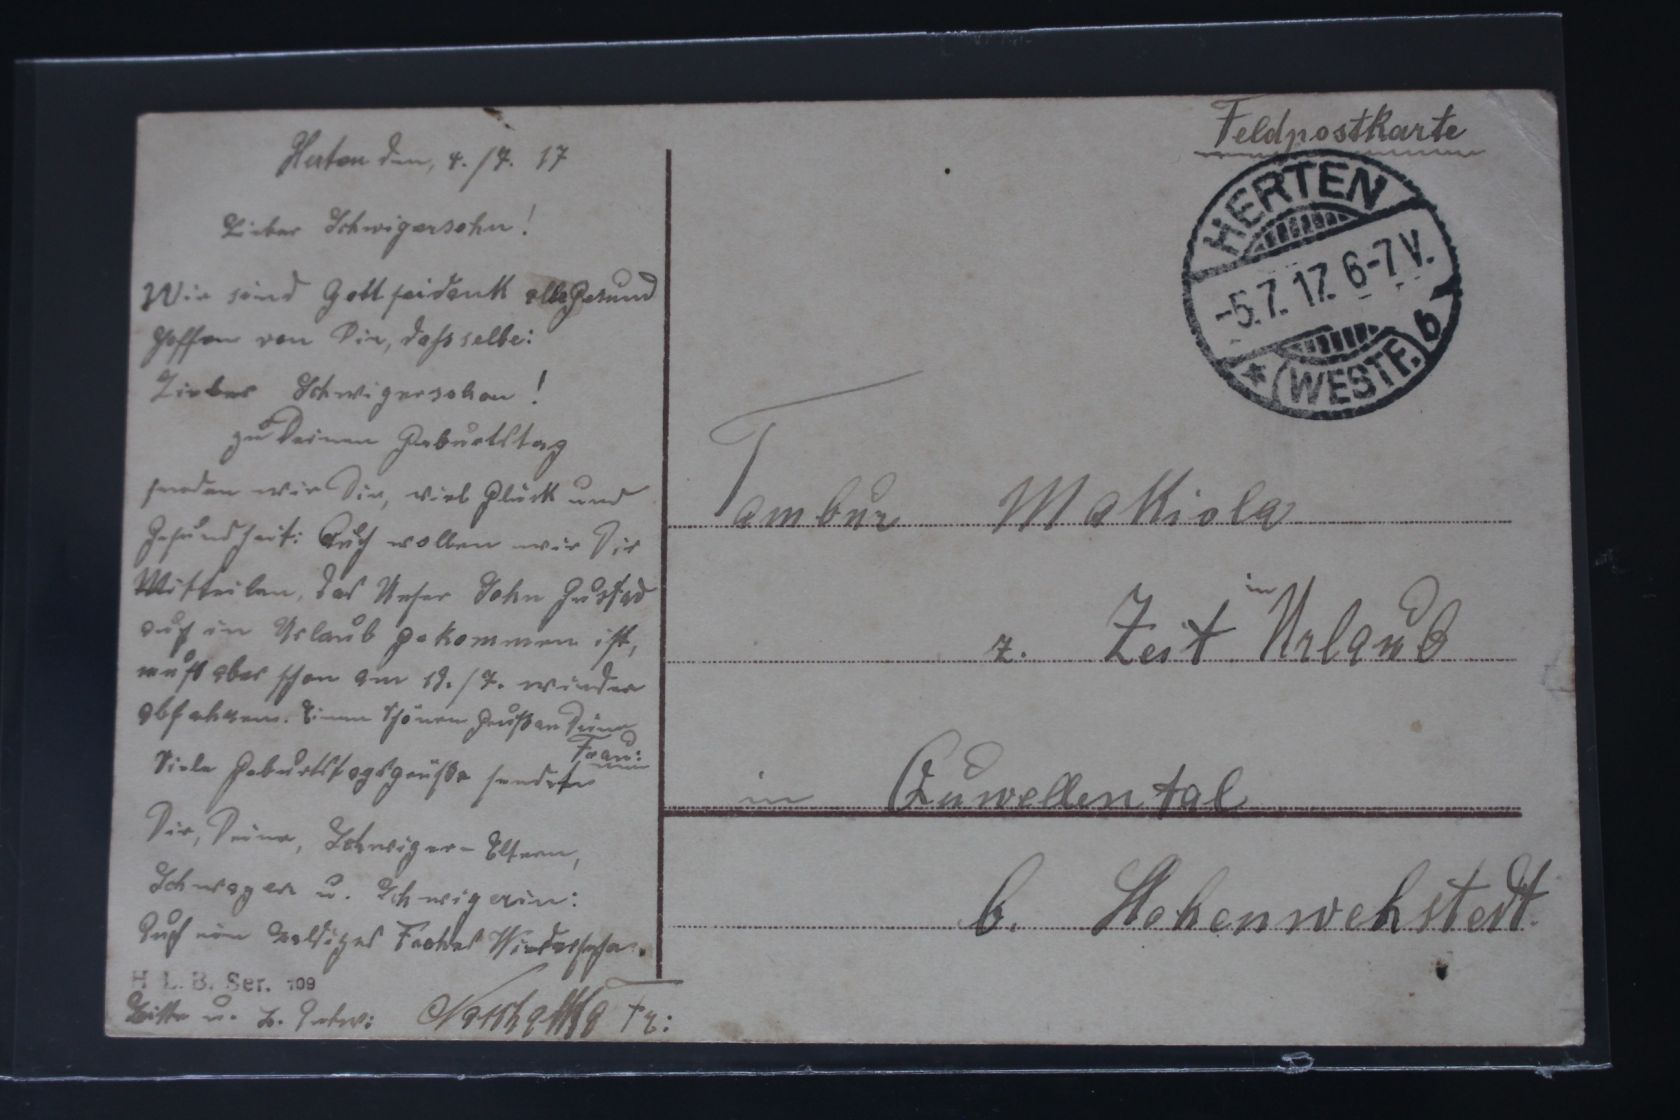 Herten den, 4./7. 17
Lieber Schwigersohn!
Wir sind Gott seidank alle Gesund
hoffen von Dir, dasselbe:
Lieber Schwigersohn!
zu Deinen Geburtstag
senden wir Dir, viel Glück und
Gesundheit: Auch wollen wir Dir
Mitteilen, das Unser Sohn Gustav
auch in Urlaub gekommen ist,
muß aber schon am 12./7. wieder
abfahren. Einen schönen Gruß an Deine
Frau:
Viele Geburtstagsgrüße senden
Dir, Deine, Schwiger-Eltern,
Schwager u. Schwigerin:
Auch ein baldiges Frohes Wiedersehn.
H. L. B. Ser. 109
Bitte u. b. Antw:
Fr:
Feldpostkarte
HERTEN
-5.7.17. 6-7 V.
* (WESTF.) b
Tambur Makiola
z. Zeit in Urlaub
in Quwellental
b. Hohenwehstedt.